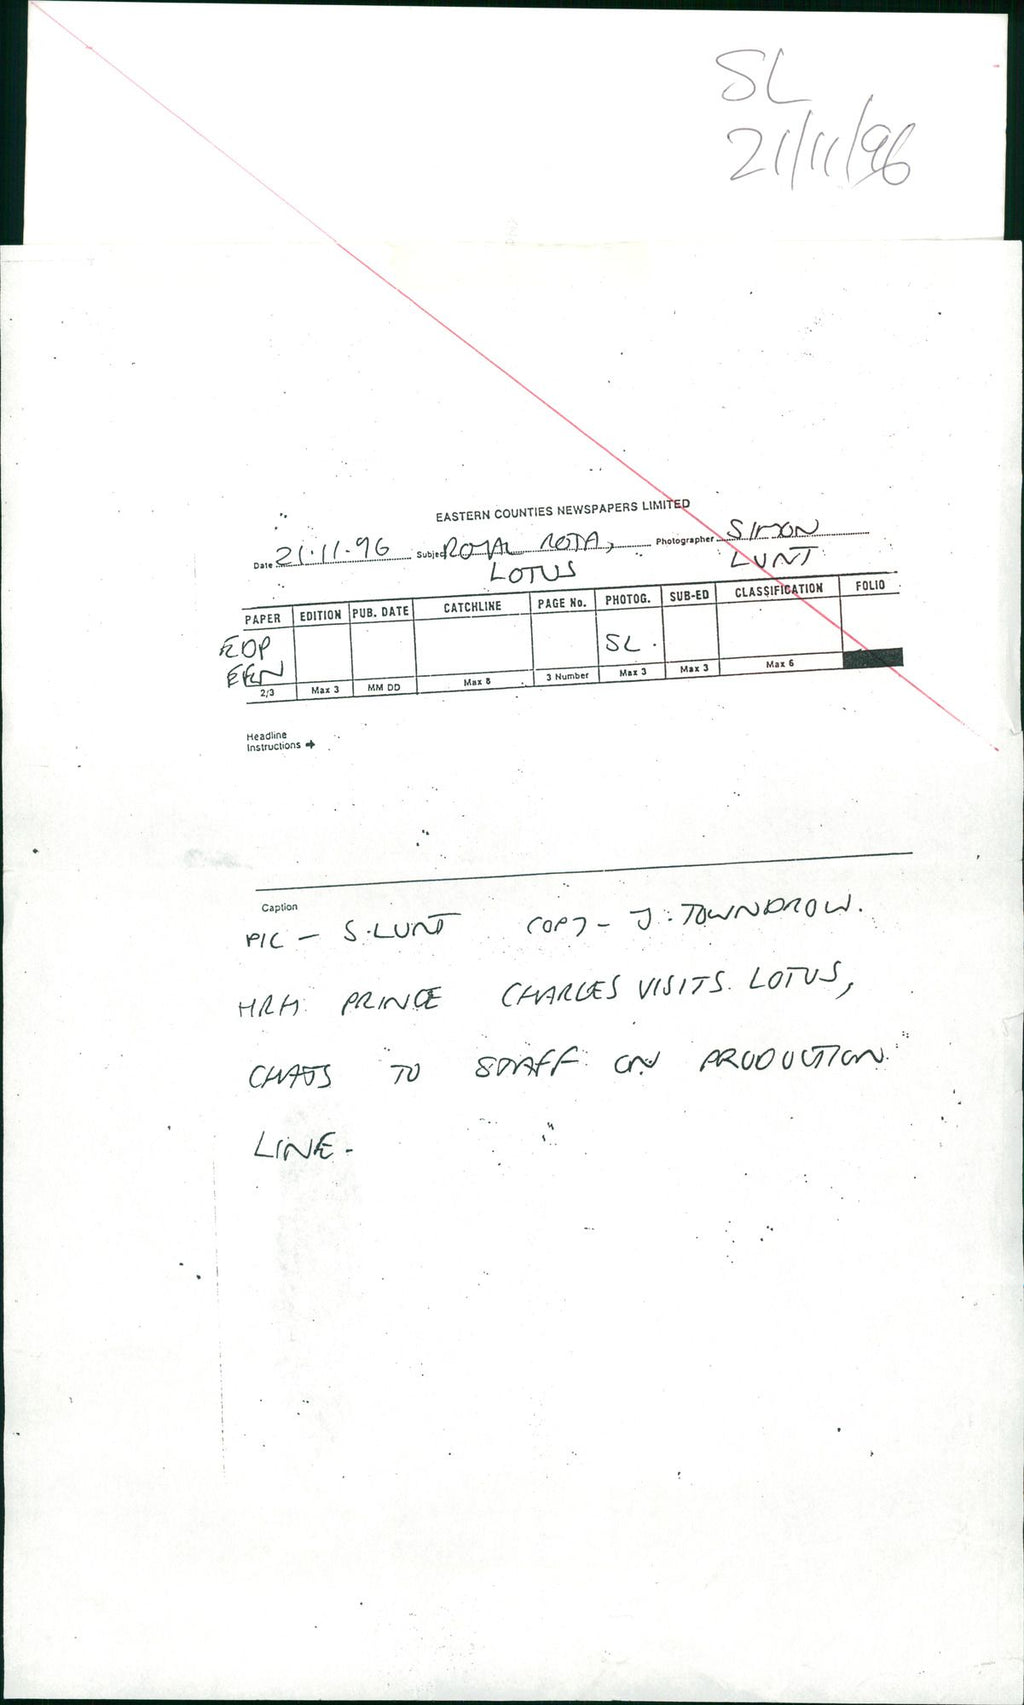 SL
21/11/96
EASTERN COUNTIES NEWSPAPERS LIMITED
Date 21.11.96 Subject ROYAL ROTA, Photographer SIMON
LOTUS LUNT
PAPER EDITION PUB. DATE CATCHLINE PAGE No. PHOTOG. SUB-ED CLASSIFICATION FOLIO
EDP
SL.
EEN
2/3 Max 3 MM DD Max 8 3 Number Max 3 Max 3 Max 6
Headline
Instructions →
Caption
PIC - S.LUNT COPY - J. TOWNDROW.
HRH PRINCE CHARLES VISITS LOTUS,
CHATS TO STAFF ON PRODUCTION
LINE -